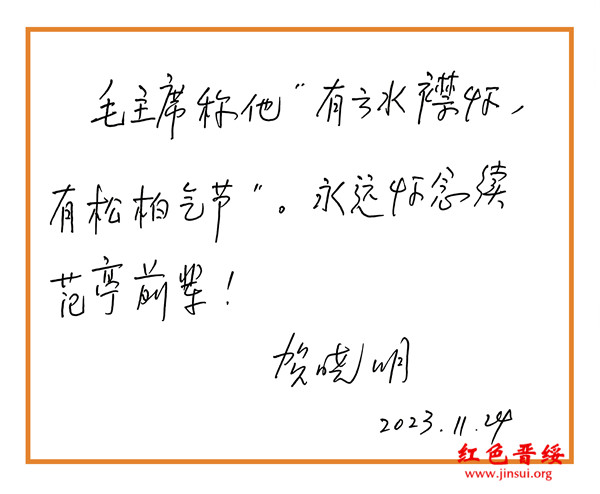 毛主席称他“有云水襟怀，
有松柏气节”。永远怀念续
范亭前辈！
贺晓明
2023.11.24
红色晋绥
www.jinsui.org